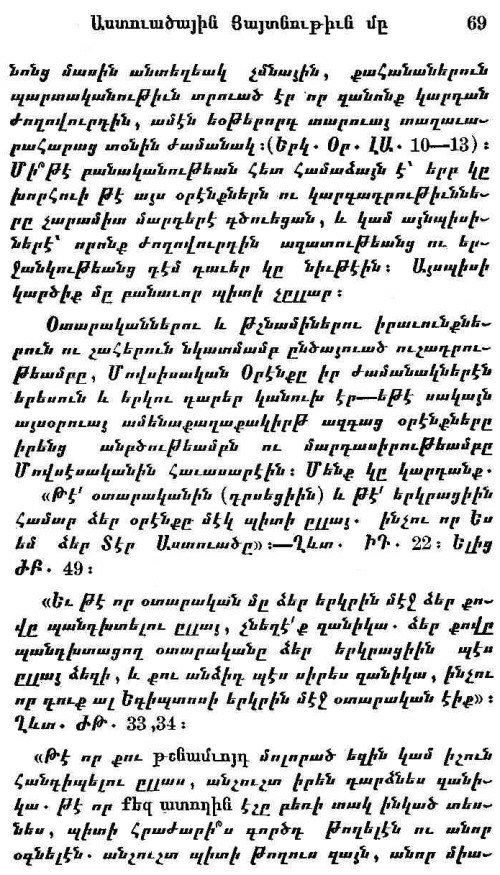 Աստուածային Յայտնութիւն մը 69
նոնց մասին անտեղեակ չմնային, քահանաներուն
պարտականութիւն տրուած էր որ զանոնք կարդան
ժողովուրդին, ամէն եօթերորդ տարուայ տաղաւա-
րահարաց տօնին ժամանակ։(Երկ. Օր. ԼԱ. 10—13)։
Մի՞թէ բանականութեան հետ համաձայն է՝ երբ կը
խորհուի թէ այս օրէնքներն ու կարգադրութիւննե-
րը չարամիտ մարդերէ գծուեցան, և կամ այնպիսի-
ներէ՝ որոնք ժողովուրդին ազատութեանց ու եր-
ջանկութեանց դէմ դաւեր կը նիւթէին։ Այսպիսի
կարծիք մը բանաւոր պիտի չըլլար։
Օտարականներու և թշնամիներու իրաւունքնե-
րուն ու շահերուն նկատմամբ ընծայուած ուշադրու-
թեամբը, Մովսիսական Օրէնքը իր ժամանակներէն
երեսուն և երկու դարեր կանուխ էր—եթէ սակայն
այսօրուայ ամենաքաղաքակիրթ ազգաց օրէնքները
իրենց անրծութեամբն ու մարդասիրութեամբը
Մովսէսականին հաւասարէին։ Մենք կը կարդանք.
«Թէ՛ օտարականին (դրսեցիին) և թէ՛ երկրացիին
համար ձեր օրէնքը մէկ պիտի ըլլայ. ինչու որ Ես
եմ ձեր Տէր Աստուածը»։—Ղևտ. ԻԴ. 22։ Ելից
ԺԲ. 49։
«Եւ թէ որ օտարական մը ձեր երկրին մէջ ձեր քո-
վը պանդխտելու ըլլայ, չնեղէ՛ք զանիկա. ձեր քովը
պանդխտացող օտարականը ձեր երկրացիին պէս
ըլլայ ձեզի, և քու անձիդ պէս սիրես զանիկա, ինչու
որ դուք ալ Եգիպտոսի երկրին մէջ օտարական էիք»։
Ղևտ. ԺԹ. 33,34։
«Թէ որ քու թշնամւոյդ մոլորած եզին կամ իշուն
հանդիպելու ըլլաս, անշուշտ իրեն դարձնես զանի-
կա. թէ որ քեզ ատողին էշը բեռի տակ ինկած տես-
նես, պիտի հրաժարի՞ս գործդ թողելէն ու անոր
օգնելէն. անշուշտ պիտի թողուս զայն, անոր միա-